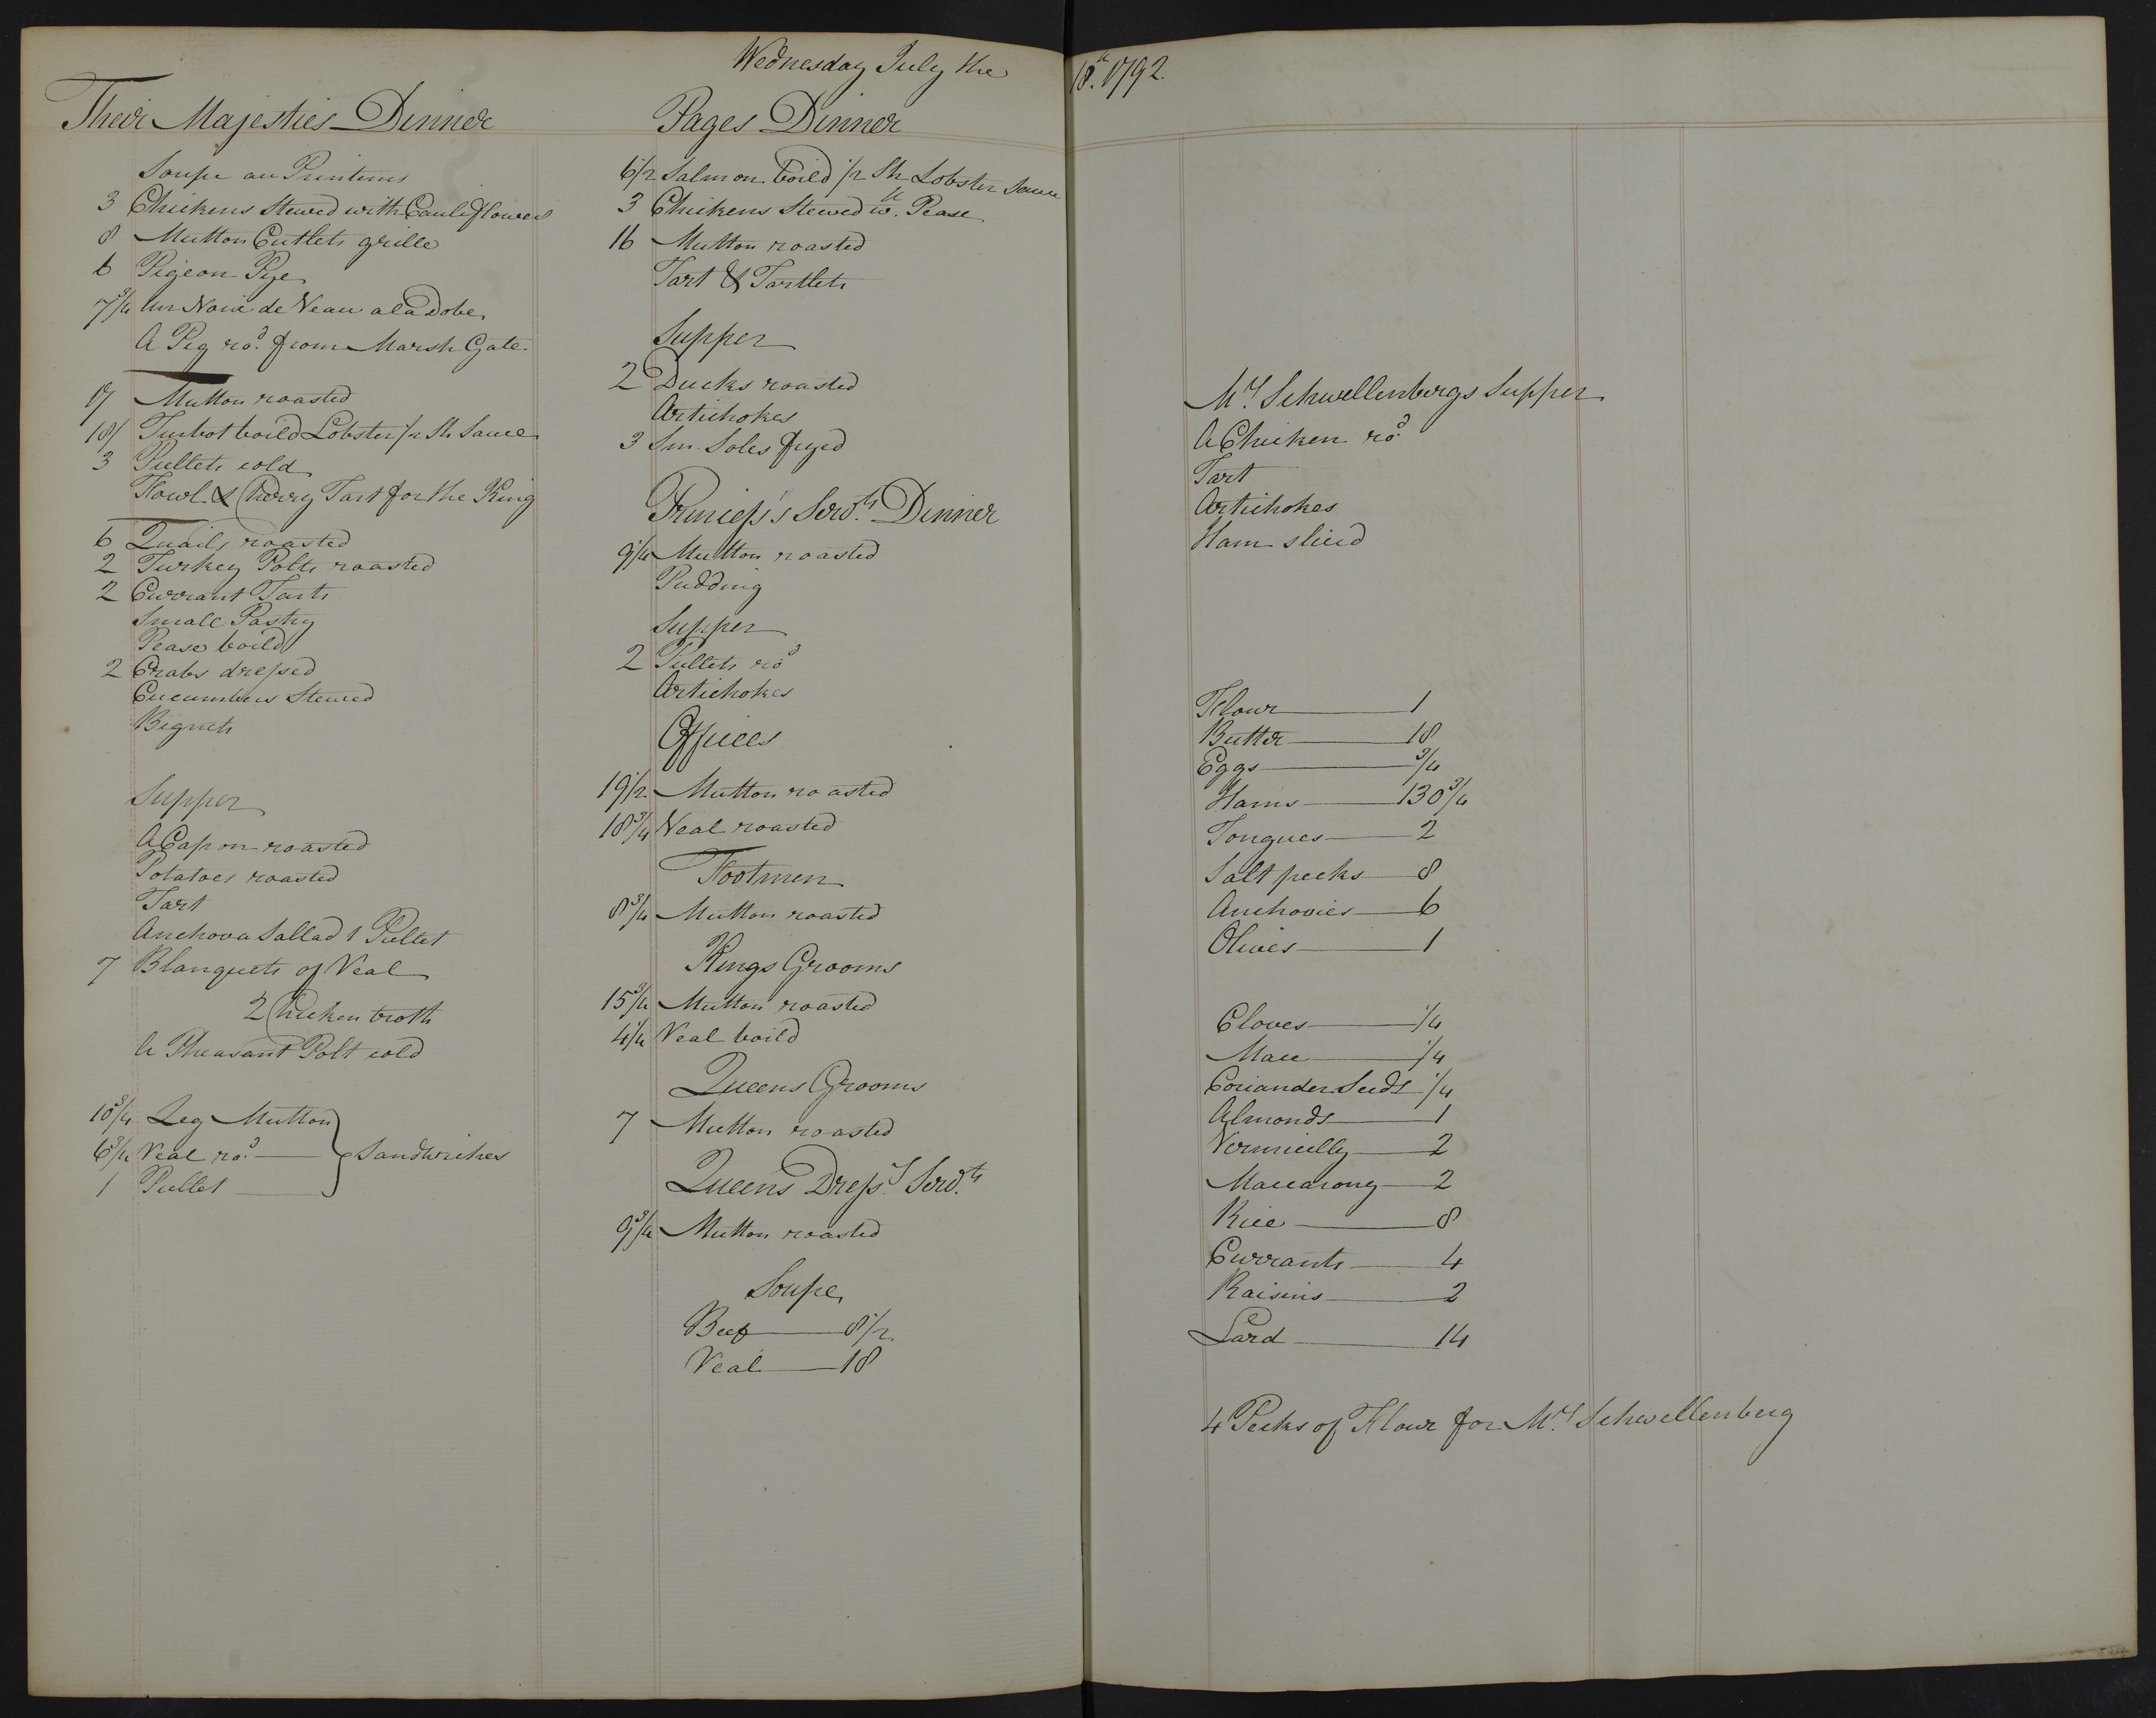 Wednesday July the 18th. 1792.
Their Majesties Dinner
Soupe au Printems
3 Chickens Stewed with Cauliflowers
8 Mutton Cutlets grille
6 Pigeon Pye
7 3/4 Un Noix de Veau a la Dobe
A Pig rod. from Marsh Gate
17 Mutton roasted
18/ Turbot boild Lobster 1/2 Sh Sauce
3 Pullets cold
Fowl & Cherry Tart for the King
6 Quails roasted
2 Turkey Polts roasted
2 Currant Tarts
Small Pastry
Pease boild
2 Crabs dressed
Cucumbers Stewed
Bignets
Supper
A Capon roasted
Potatoes roasted
Tart
Anchova Sallad 1 Pullet
7 Blanquets of Veal
2 Chicken broth
A Pheasant Polt cold
10 3/4 Leg Mutton
6 3/4 Veal rod. } Sandwiches
1 Pullet
Pages Dinner
6 1/2 Salmon boild 1/2 Sh Lobster Sauce
3 Chickens Stewed wt. Pease
16 Mutton roasted
Tart & Tartlets
Supper
2 Ducks roasted
Artichokes
3 Sm Soles fryed
Princess's Servts. Dinner
9 1/4 Mutton roasted
Pudding
Supper
2 Pullets rod
Artichokes
Offices
19 1/2 Mutton roasted
18 3/4 Veal roasted
Footmen
8 3/4 Mutton roasted
Kings Grooms
15 3/4 Mutton roasted
4 1/4 Veal boild
Queens Grooms
7 Mutton roasted
Queens Dressrs. Servts.
9 3/4 Mutton roasted
Soupe
Beef 8 1/2
Veal 18
Mrs. Schwellenbergs Supper
A Chicken rod.
Tart
Artichokes
Ham sliced
Flour 1
Butter 18
Eggs 3/4
Hams 130 3/4
Tongues 2
Salt pecks 8
Anchovies 6
Olives 1
Cloves 1/4
Mace 1/4
Coriander Seeds 1/4
Almonds 1
Vermicelly 2
Maccarony 2
Rice 8
Currants 4
Raisins 2
Lard 14
4 Pecks of Flour for Mrs. Schwellenberg